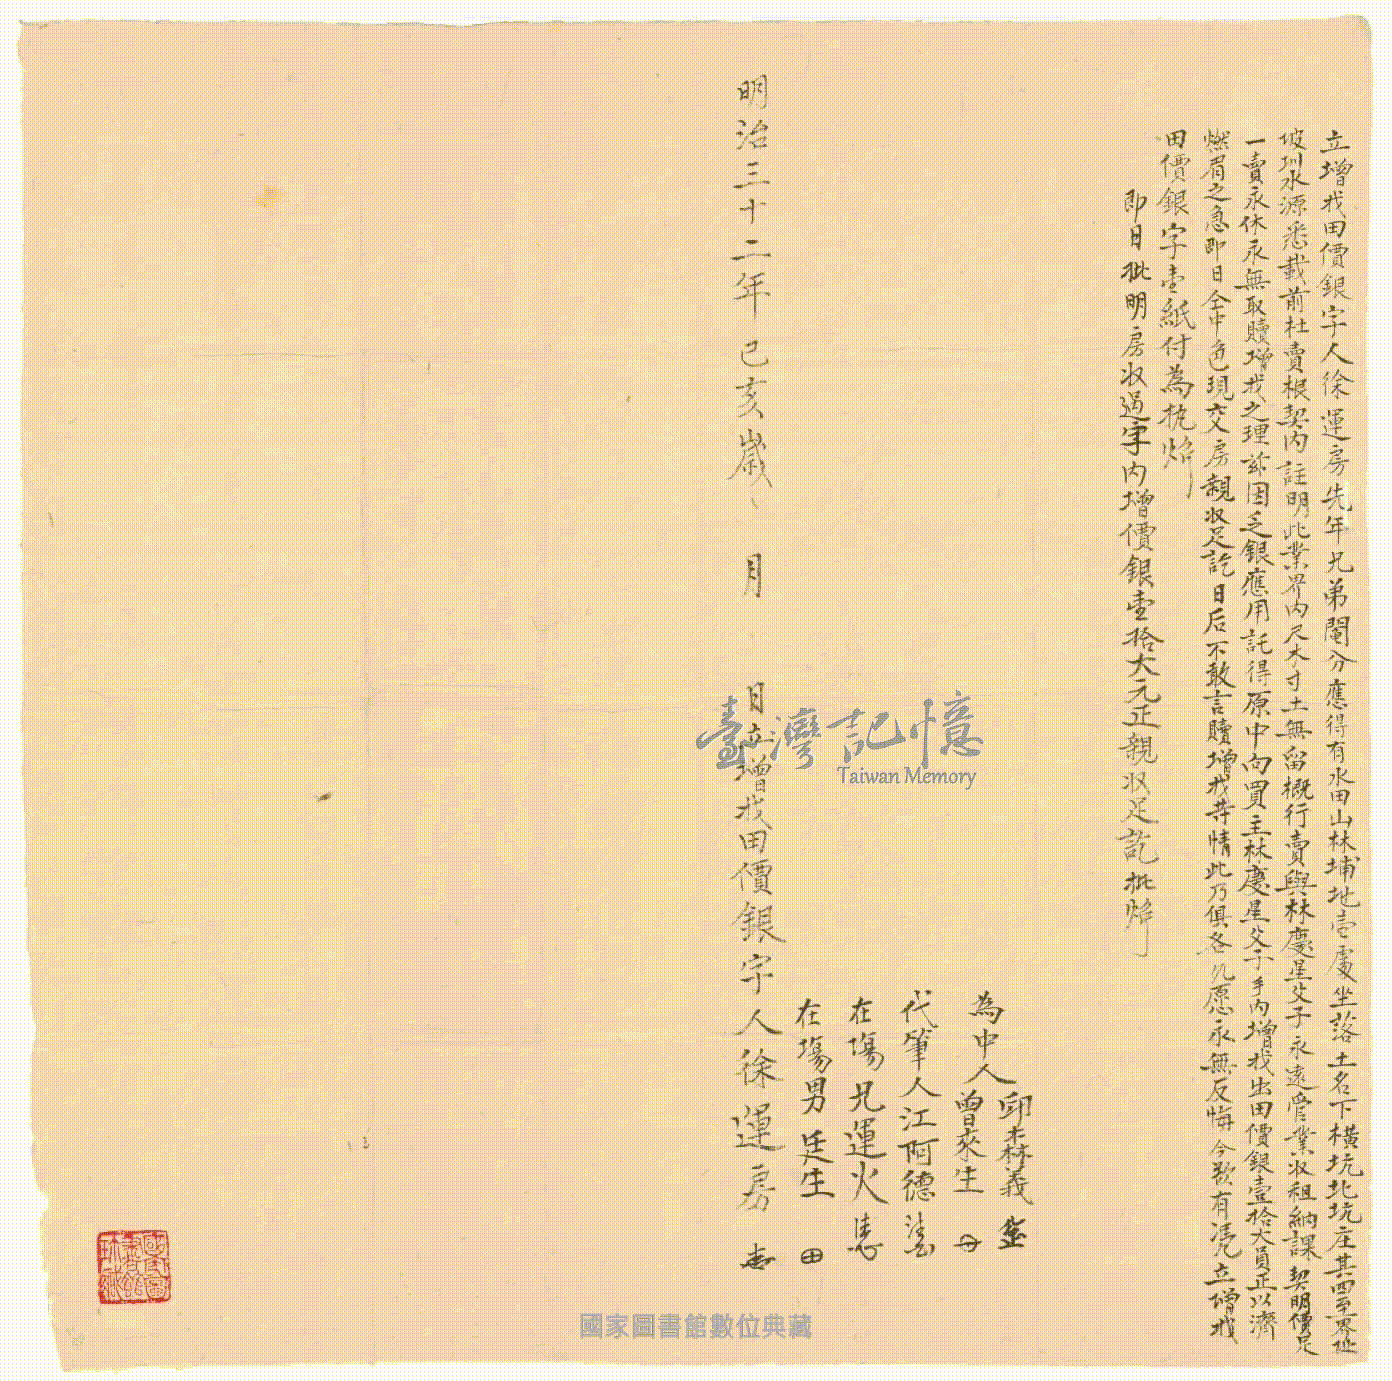 立增找田價銀字人徐運房先年兄弟鬮分應得有水田山林埔地壹處坐落土名下橫坑北坑庄其四至界址
坡圳水源悉載前杜賣根契內註明此業界內尺木寸土無留概行賣與林慶星父子永遠管業收租納課契明價足
一賣永休永無取贖增找之理茲因乏銀應用託得原中向買主林慶星父子手內增找出田價銀壹拾大員正以濟
燃眉之急即日仝中色現交房親收足訖日后不敢言贖增找等情此乃俱各允愿永無反悔今欲有憑立增找
田價銀字壹紙付為執炤
即日批明房收過字內增價銀壹拾大元正親收足訖批炤
為中人
邱森義
曾來生
代筆人江阿德
在塲兄運火
在塲男廷生
明治三十二年己亥歲 月 日立增找田價銀字人徐運房
臺灣記憶
Taiwan Memory
國家圖書館數位典藏